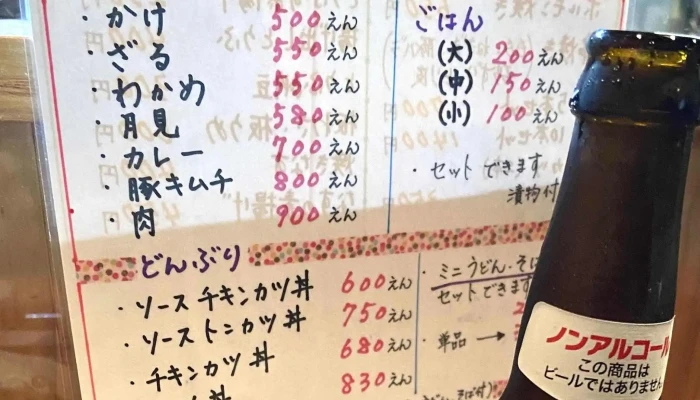 ・かけ 500えん
・ざる 550えん
・わかめ 550えん
・月見 580えん
・カレー 700えん
・豚キムチ 800えん
・肉 900えん
ごはん
(大) 200えん
(中) 150えん
(小) 100えん
・セットできます
漬物付
どんぶり
・ソースチキンカツ丼 600えん
・ソーストンカツ丼 750えん
・チキンカツ丼 680えん
丼 830えん
・ミニうどん・そば
セットできます
・単品 →
ノンアルコール
この商品は
ビールではありません